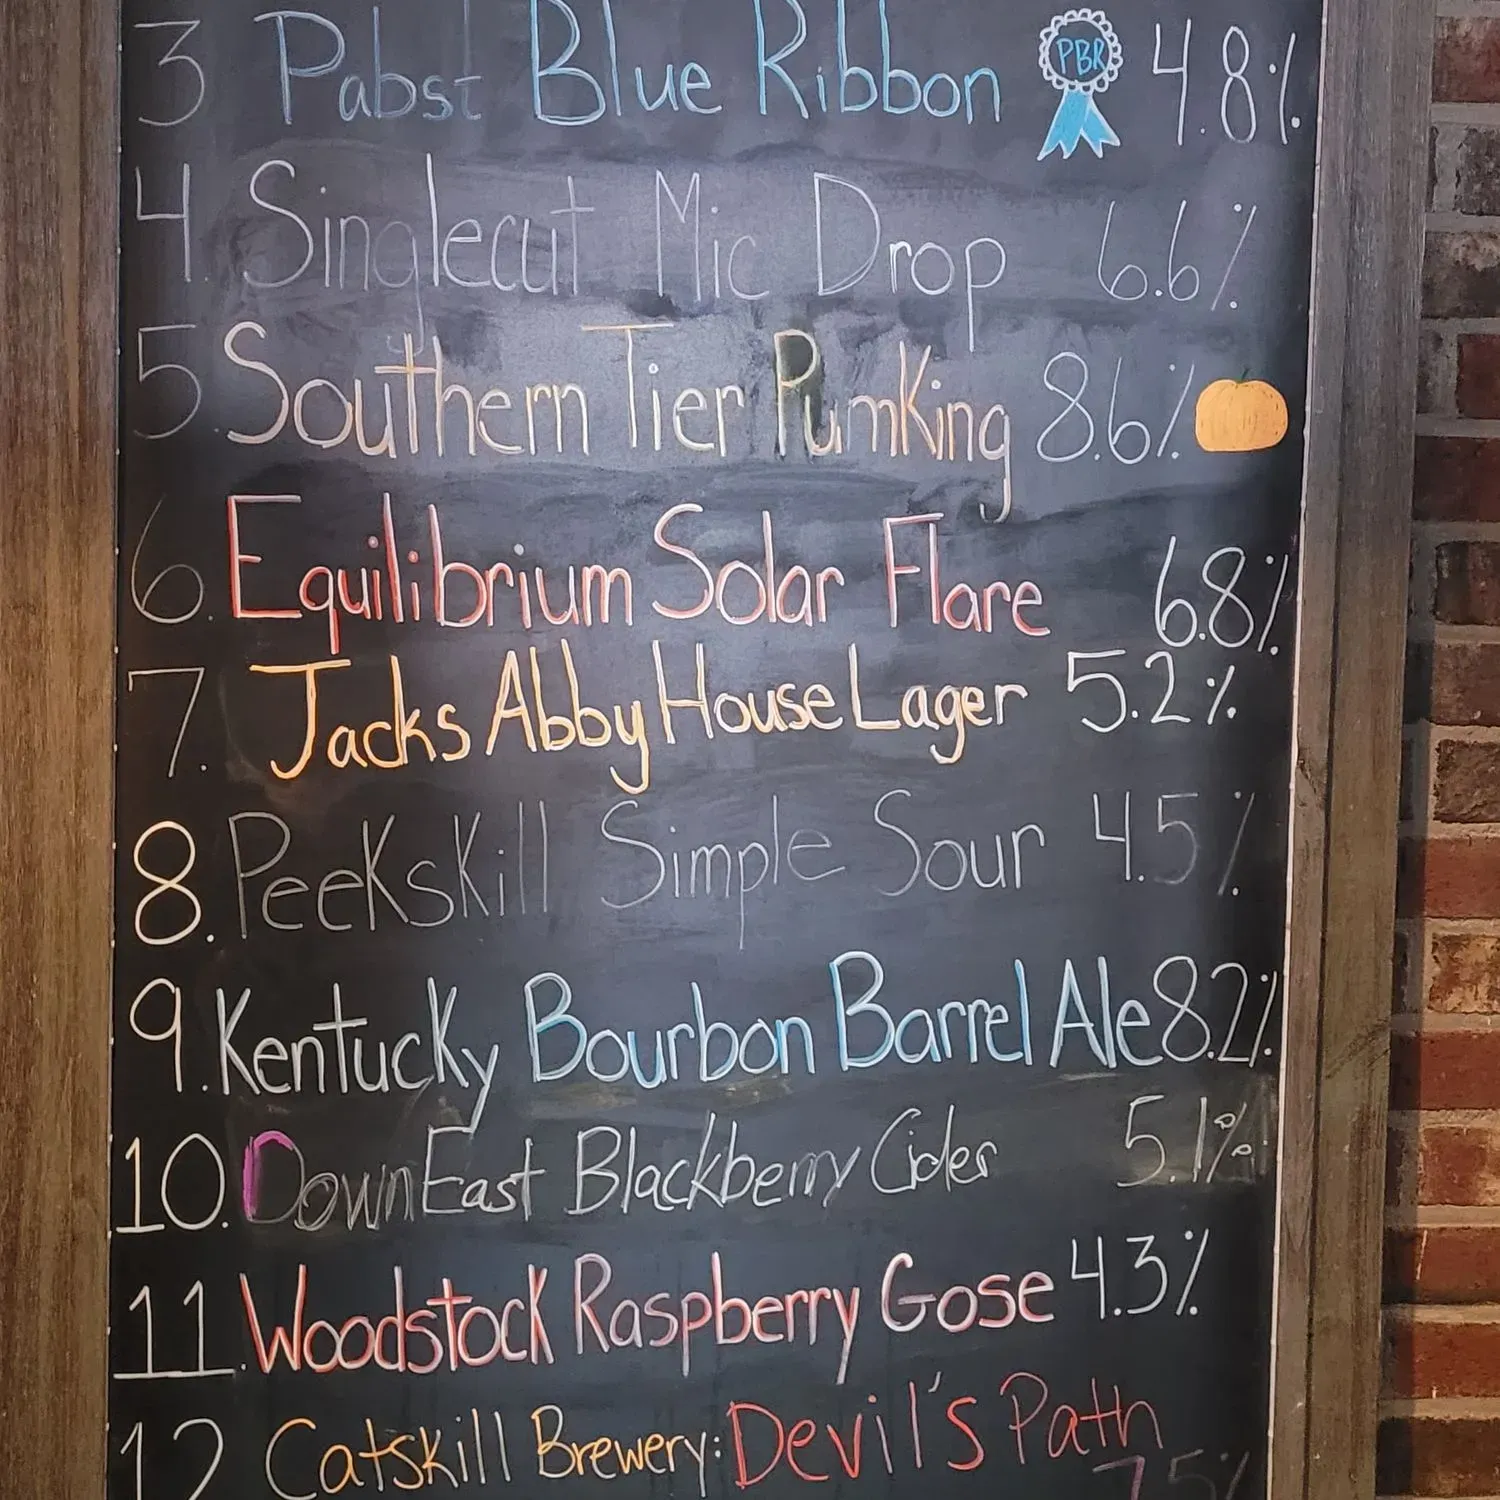 3 Pabst Blue Ribbon PBR 4.8%
4. Singlecut Mic Drop 6.6%
5. Southern Tier PumKing 8.6%
6. Equilibrium Solar Flare 6.8%
7. Jacks Abby House Lager 5.2%
8. PeeKsKill Simple Sour 4.5%
9. Kentucky Bourbon Barrel Ale 8.2%
10. DownEast Blackberry Cider 5.1%
11. Woodstock Raspberry Gose 4.3%
12 Catskill Brewery: Devil's Path
7.5%